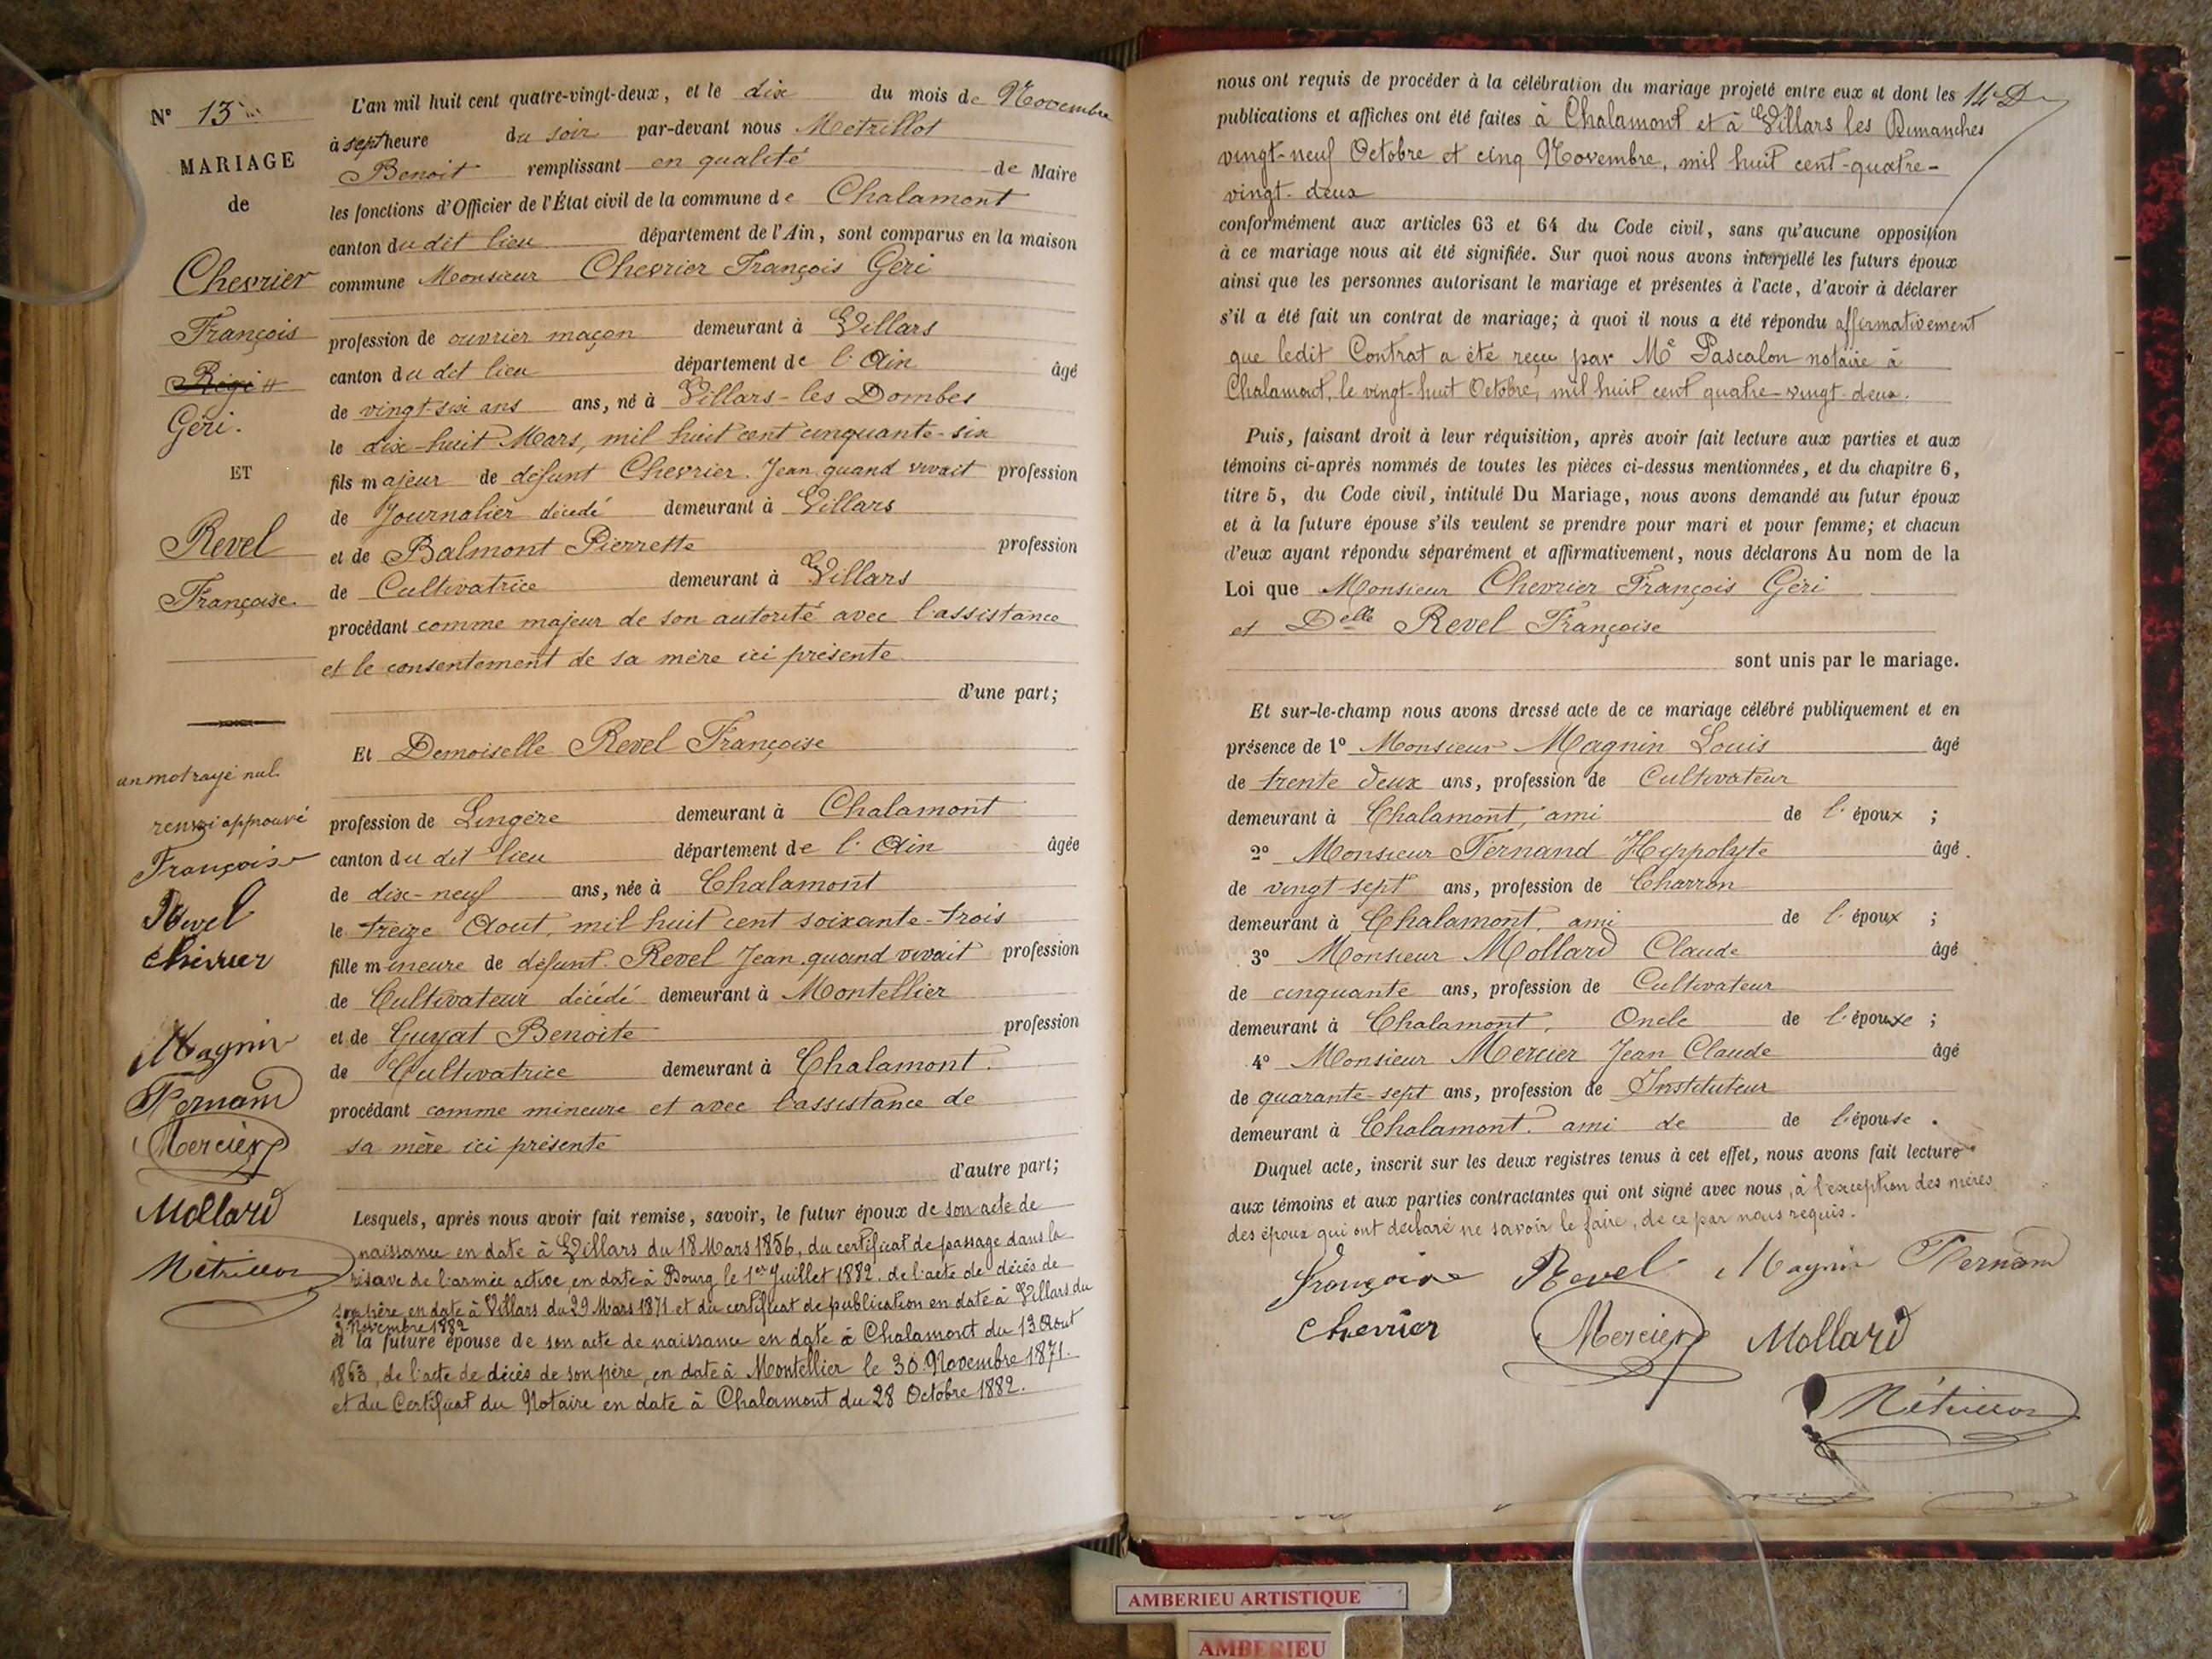 N° 13
MARIAGE
de
Chevrier
François
Régi
Géri.
ET
Revel
Françoise.
un mot rayé nul.
renvoi approuvé
Françoise
Revel
Chevrier
Magnin
Fernand
Mercier
Mollard
Métrillot
L'an mil huit cent quatre-vingt-deux, et le dix du mois de Novembre
à sept heure du soir par-devant nous Métrillot
Benoit remplissant en qualité de Maire
les fonctions d'Officier de l'État civil de la commune de Chalamont
canton du dit lieu département de l'Ain, sont comparus en la maison
commune Monsieur Chevrier François Géri
profession de ouvrier maçon demeurant à Villars
canton du dit lieu département de l'Ain âgé
de vingt-six ans ans, né à Villars-les Dombes
le dix-huit Mars, mil huit cent cinquante-six
fils majeur de défunt Chevrier Jean quand vivait profession
de Journalier décédé demeurant à Villars
et de Balmont Pierrette profession
de Cultivatrice demeurant à Villars
procédant comme majeur de son autorité avec l'assistance
et le consentement de sa mère ici présente
d'une part;
Et Demoiselle Revel Françoise
profession de Lingère demeurant à Chalamont
canton du dit lieu département de l'Ain âgée
de dix-neuf ans, née à Chalamont
le treize Aout, mil huit cent soixante-trois
fille mineure de défunt Revel Jean quand vivait profession
de Cultivateur décédé demeurant à Montellier
et de Guyat Benoite profession
de Cultivatrice demeurant à Chalamont.
procédant comme mineure et avec l'assistance de
sa mère ici présente
d'autre part;
Lesquels, après nous avoir fait remise, savoir, le futur époux de son acte de
naissance en date à Villars du 18 Mars 1856, du certificat de passage dans la
réserve de l'armée active en date à Bourg le 1er Juillet 1882. de l'acte de décès de
son père en date à Villars du 29 Mars 1871 et du certificat de publication en date à Villars du
Novembre 1882
et la future épouse de son acte de naissance en date à Chalamont du 13 Aout
1863, de l'acte de décès de son père, en date à Montellier le 30 Novembre 1871.
et du Certificat du Notaire en date à Chalamont du 28 Octobre 1882.
nous ont requis de procéder à la célébration du mariage projeté entre eux et dont les
publications et affiches ont été faites à Chalamont et à Villars les Dimanches
vingt-neuf Octobre et cinq Novembre, mil huit cent-quatre-
vingt-deux
conformément aux articles 63 et 64 du Code civil, sans qu'aucune opposition
à ce mariage nous ait été signifiée. Sur quoi nous avons interpellé les futurs époux
ainsi que les personnes autorisant le mariage et présentes à l'acte, d'avoir à déclarer
s'il a été fait un contrat de mariage; à quoi il nous a été répondu affirmativement
que ledit Contrat a été reçu par Me Pascalon notaire à
Chalamont, le vingt-huit Octobre, mil huit cent quatre-vingt-deux.
Puis, faisant droit à leur réquisition, après avoir fait lecture aux parties et aux
témoins ci-après nommés de toutes les pièces ci-dessus mentionnées, et du chapitre 6,
titre 5, du Code civil, intitulé Du Mariage, nous avons demandé au futur époux
et à la future épouse s'ils veulent se prendre pour mari et pour femme; et chacun
d'eux ayant répondu séparément et affirmativement, nous déclarons Au nom de la
Loi que Monsieur Chevrier François Géri
et Delle Revel Françoise
sont unis par le mariage.
Et sur-le-champ nous avons dressé acte de ce mariage célébré publiquement et en
présence de 1° Monsieur Magnin Louis âgé
de trente deux ans, profession de Cultivateur
demeurant à Chalamont, ami de l'époux ;
2° Monsieur Fernand Hippolyte âgé
de vingt-sept ans, profession de Charron
demeurant à Chalamont, ami de l'époux ;
3° Monsieur Mollard Claude âgé
de cinquante ans, profession de Cultivateur
demeurant à Chalamont, Oncle de l'épouxe ;
4° Monsieur Mercier Jean Claude âgé
de quarante-sept ans, profession de Instituteur
demeurant à Chalamont. ami de de l'épouse .
Duquel acte, inscrit sur les deux registres tenus à cet effet, nous avons fait lecture
aux témoins et aux parties contractantes qui ont signé avec nous, à l'exception des mères
des époux qui ont déclaré ne savoir le faire, de ce par nous requis.
Françoise Revel Magnin Fernand
Chevrier Mercier Mollard
Métrillot
AMBERIEU ARTISTIQUE
AMBERIEU